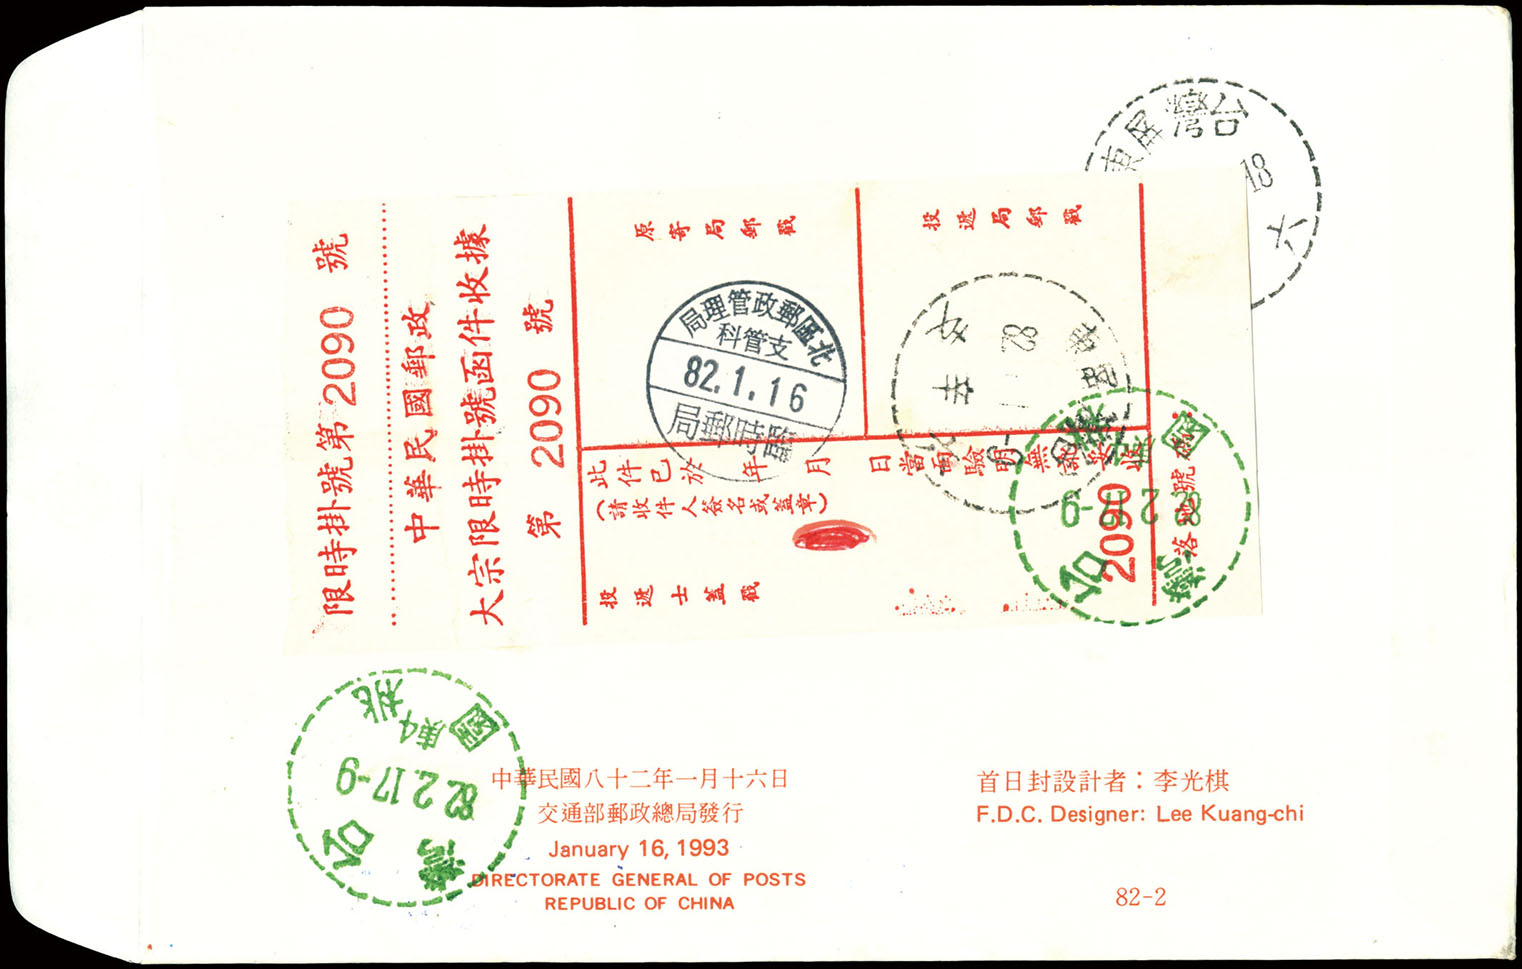 限時掛號第 2090 號
中華民國郵政
大宗限時掛號函件收據
第 2090 號
原寄局郵戳
投遞局郵戳
北區郵政管理局
支管科
82.1.16
臨時郵局
台灣屏東
18
六
82
此件已於 年 月 日當面驗明無訛妥收
(請收件人簽名或蓋章)
投遞士蓋戳
2090
台灣
桃園
82.2.17-9
台灣
桃園
82.2.17-9
中華民國八十二年一月十六日
交通部郵政總局發行
January 16, 1993
DIRECTORATE GENERAL OF POSTS
REPUBLIC OF CHINA
首日封設計者：李光棋
F.D.C. Designer: Lee Kuang-chi
82-2